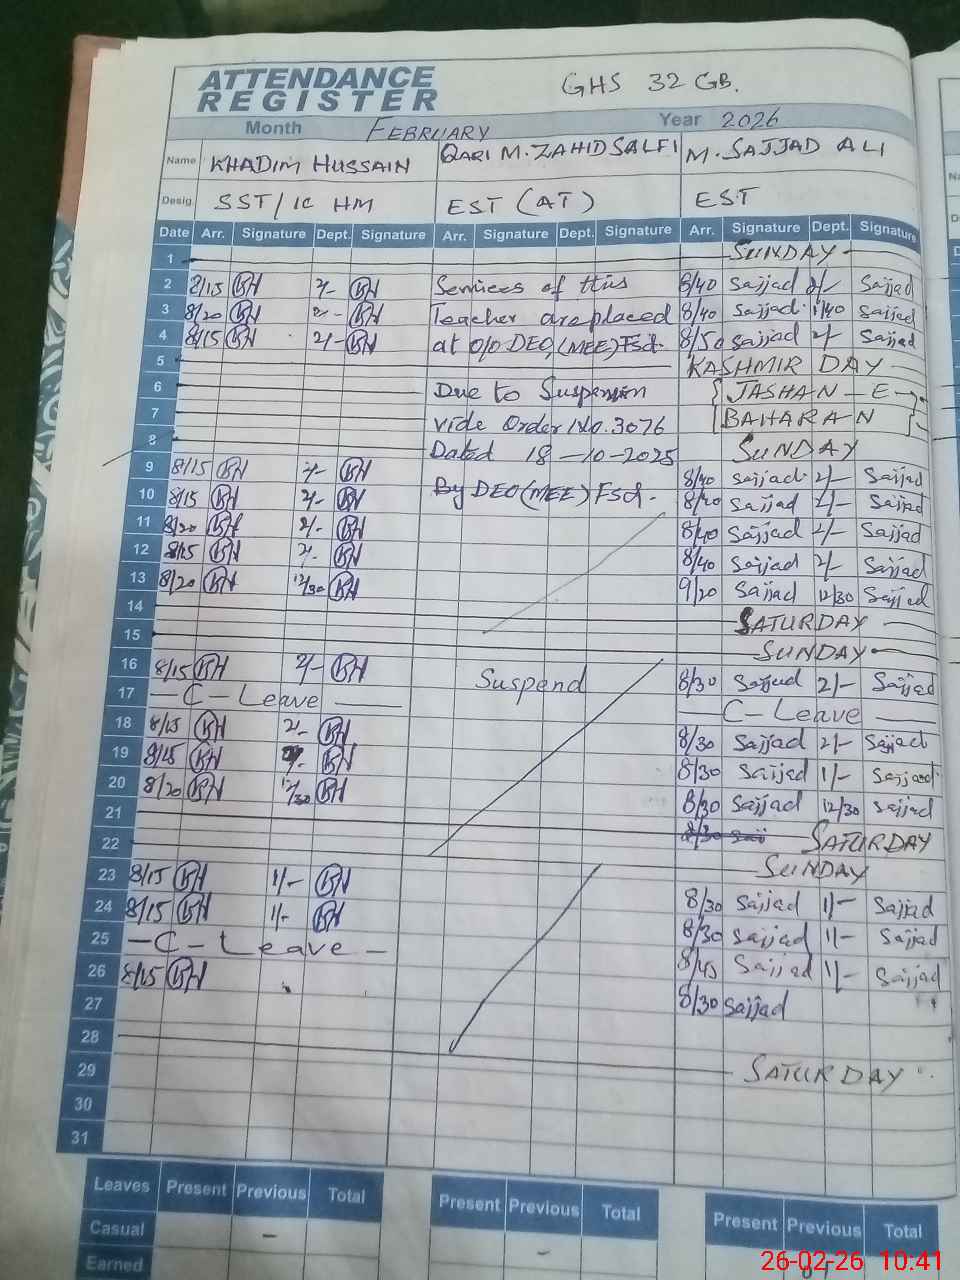 ATTENDANCE
REGISTER
GHS 32 GB.
Month FEBRUARY Year 2026
Name KHADIM HUSSAIN QARI M. ZAHID SALFI M. SAJJAD ALI
Desig. SST/IC HM EST (AT) EST
Date Arr. Signature Dept. Signature Arr. Signature Dept. Signature Arr. Signature Dept. Signature
1 SUNDAY
2 8/15 KH 2/- KH Services of this 8/40 Sajjad 2/- Sajjad
3 8/20 KH 2/- KH Teacher are placed 8/40 Sajjad 1/40 Sajjad
4 8/15 KH 2/- KH at O/O DEO, (MEE) Fsd. 8/50 Sajjad 2/- Sajjad
5 KASHMIR DAY
6 Due to Suspension JASHAN - E -
7 vide Order No. 3076 BAHARAN
8 Dated 18-10-2025 SUNDAY
9 8/15 KH 2/- KH By DEO (MEE) Fsd. 8/40 Sajjad 2/- Sajjad
10 8/15 KH 2/- KH Sajjad 2/- Sajjad
11 8/20 KH 2/- KH 8/40 Sajjad 2/- Sajjad
12 8/15 KH 2/- KH 8/40 Sajjad 2/- Sajjad
13 8/20 KH 12/30 KH 9/20 Sajjad 12/30 Sajjad
14 SATURDAY
15 SUNDAY
16 8/15 KH 2/- KH Suspend 8/30 Sajjad 2/- Sajjad
17 - C - Leave - C - Leave
18 8/15 KH 2/- KH 8/30 Sajjad 2/- Sajjad
19 8/15 KH KH 8/30 Sajjad 1/- Sajjad
20 8/20 KH 12/30 KH 8/30 Sajjad 12/30 Sajjad
21 SATURDAY
22 SUNDAY
23 8/15 KH 1/- KH 8/30 Sajjad 1/- Sajjad
24 8/15 KH 1/- KH 8/30 Sajjad 1/- Sajjad
25 - C - Leave - 8/45 Sajjad 1/- Sajjad
26 8/15 KH 8/30 Sajjad
27
28 SATURDAY
29
30
31
Leaves Present Previous Total Present Previous Total Present Previous Total
Casual -
Earned -
26-02-26 10:41